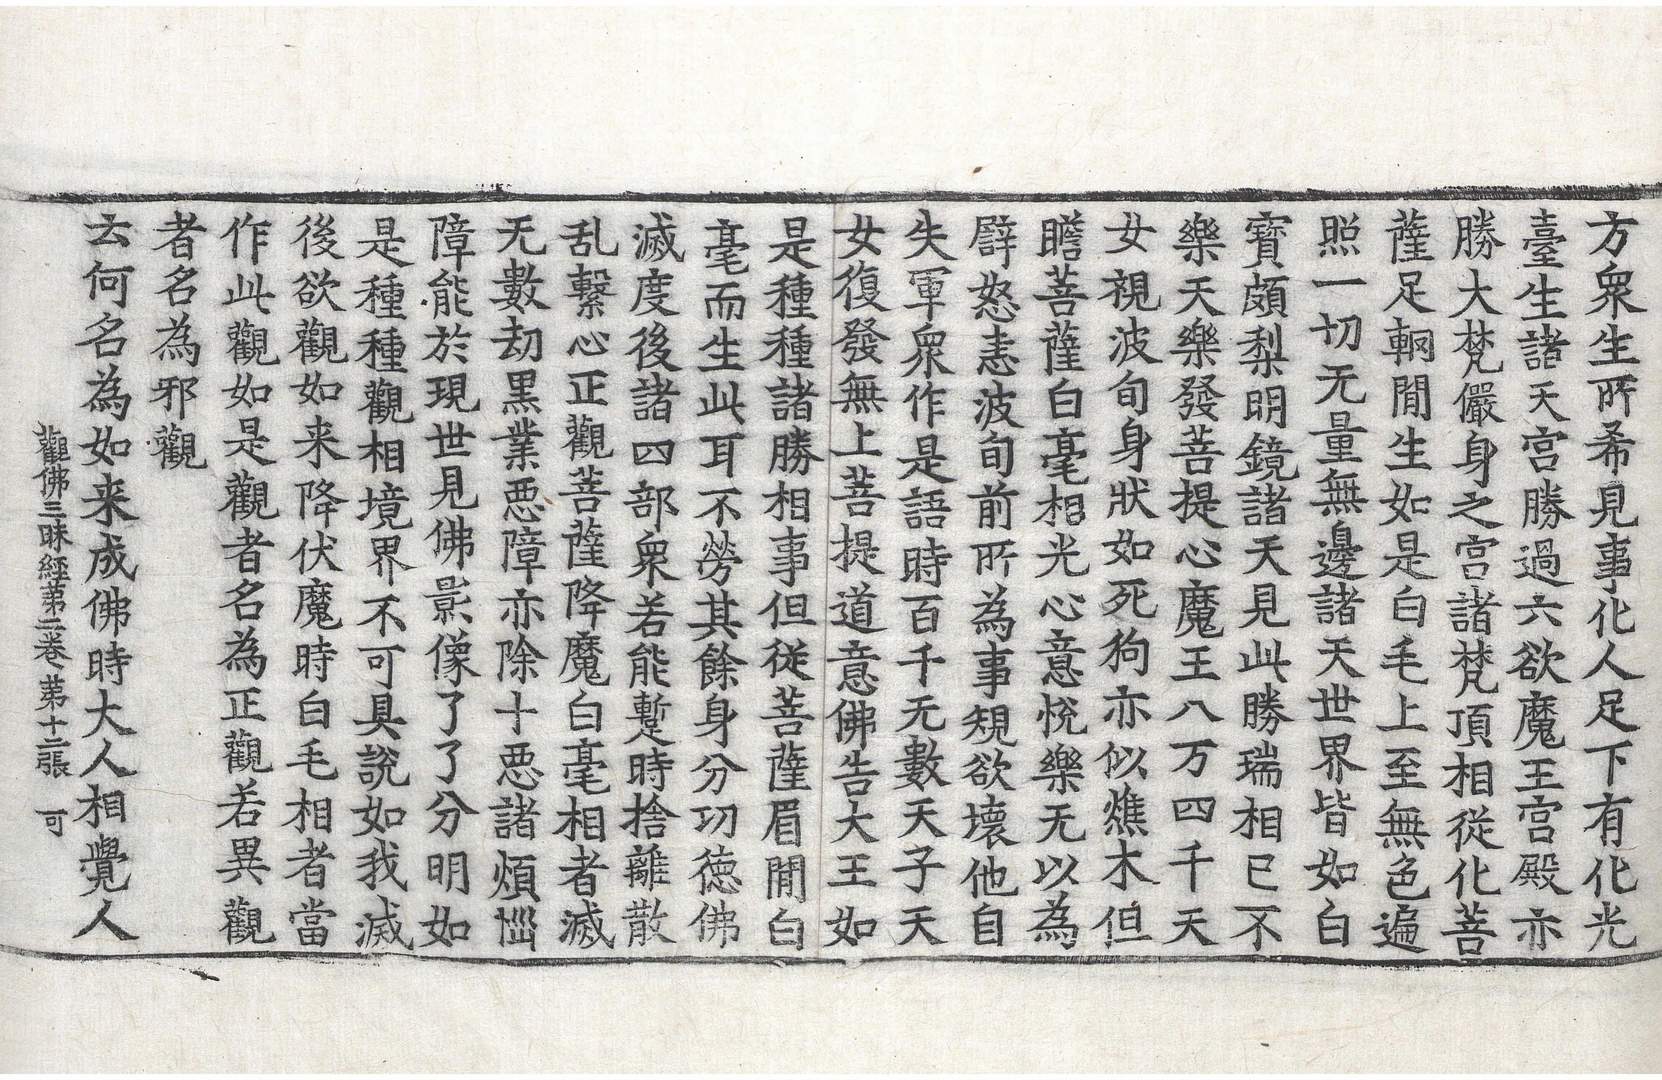 方衆生所希見事化人足下有化光
臺生諸天宮勝過六欲魔王宮殿亦
勝大梵儼身之宮諸梵頂相從化菩
薩足輞間生如是白毛上至無色遍
照一切无量無邊諸天世界皆如白
寶頗梨明鏡諸天見此勝瑞相已不
樂天樂發菩提心魔王八万四千天
女視波旬身狀如死狗亦似燋木但
瞻菩薩白毫相光心意悅樂无以為
譬怒恚波旬前所為事規欲壞他自
失軍衆作是語時百千无數天子天
女復發無上菩提道意佛告大王如
是種種諸勝相事但從菩薩眉間白
毫而生此耳不勞其餘身分功德佛
滅度後諸四部衆若能暫時捨離散
乱繫心正觀菩薩降魔白毫相者滅
无數劫黑業惡障亦除十惡諸煩惱
障能於現世見佛影像了了分明如
是種種觀相境界不可具說如我滅
後欲觀如来降伏魔時白毛相者當
作此觀如是觀者名為正觀若異觀
者名為邪觀
云何名為如来成佛時大人相覺人
觀佛三昧經第二卷 第十二張 可